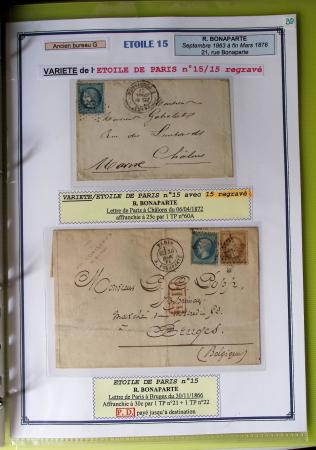 Ancien bureau G
ETOILE 15
R. BONAPARTE
Septembre 1863 à fin Mars 1876
21, rue Bonaparte
VARIETE de l'ETOILE DE PARIS n°15/15 regravé
Monsieur
Monsieur
Rue des Lombards
Marne Châlons
VARIETE/ETOILE DE PARIS n°15 avec 15 regravé
R. BONAPARTE
Lettre de Paris à Châlons du 06/04/1872
affranchie à 25c par 1 TP n°60A
PARIS
Monsieur
à Bruges
(Belgique)
ETOILE DE PARIS n°15
R. BONAPARTE
Lettre de Paris à Bruges du 30/11/1866
Affranchie à 30c par 1 TP n°21 + 1 TP n°22
P.D. payé jusqu'à destination